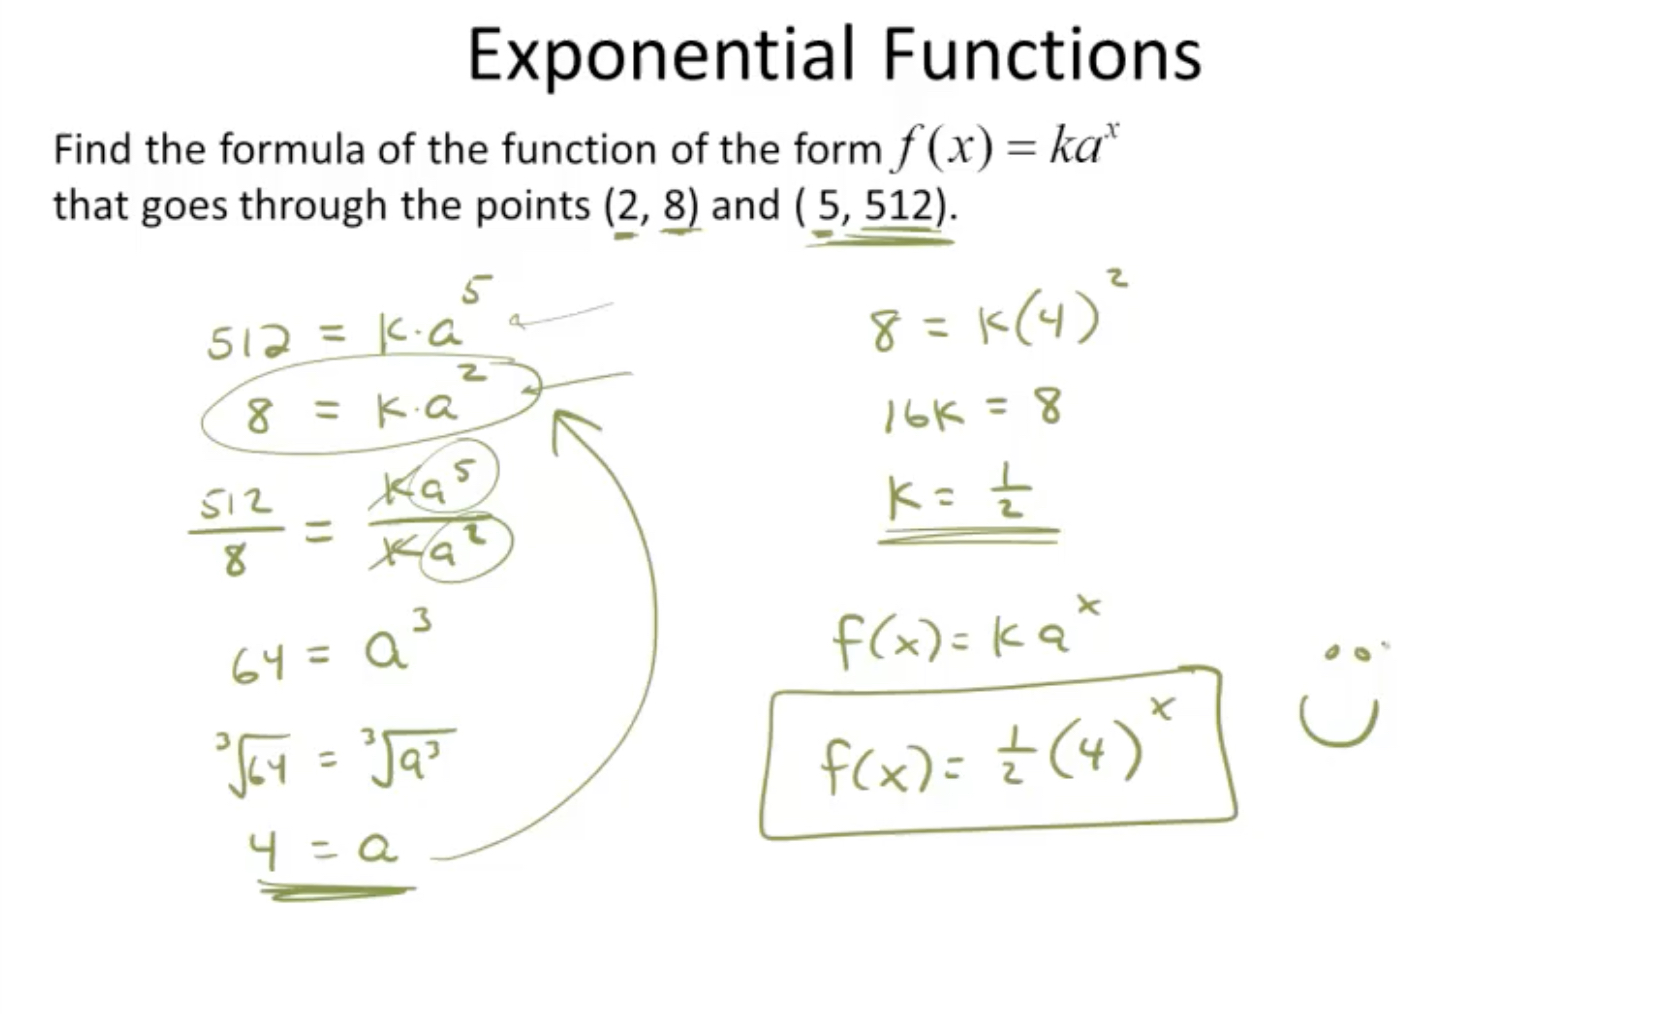 Exponential Functions
Find the formula of the function of the form f(x) = kaˣ
that goes through the points (2, 8) and ( 5, 512).
512 = k·a⁵
8 = k·a²
512/8 = ka⁵/ka²
64 = a³
³√64 = ³√a³
4 = a
8 = k(4)²
16k = 8
k = 1/2
f(x) = kaˣ
f(x) = 1/2(4)ˣ